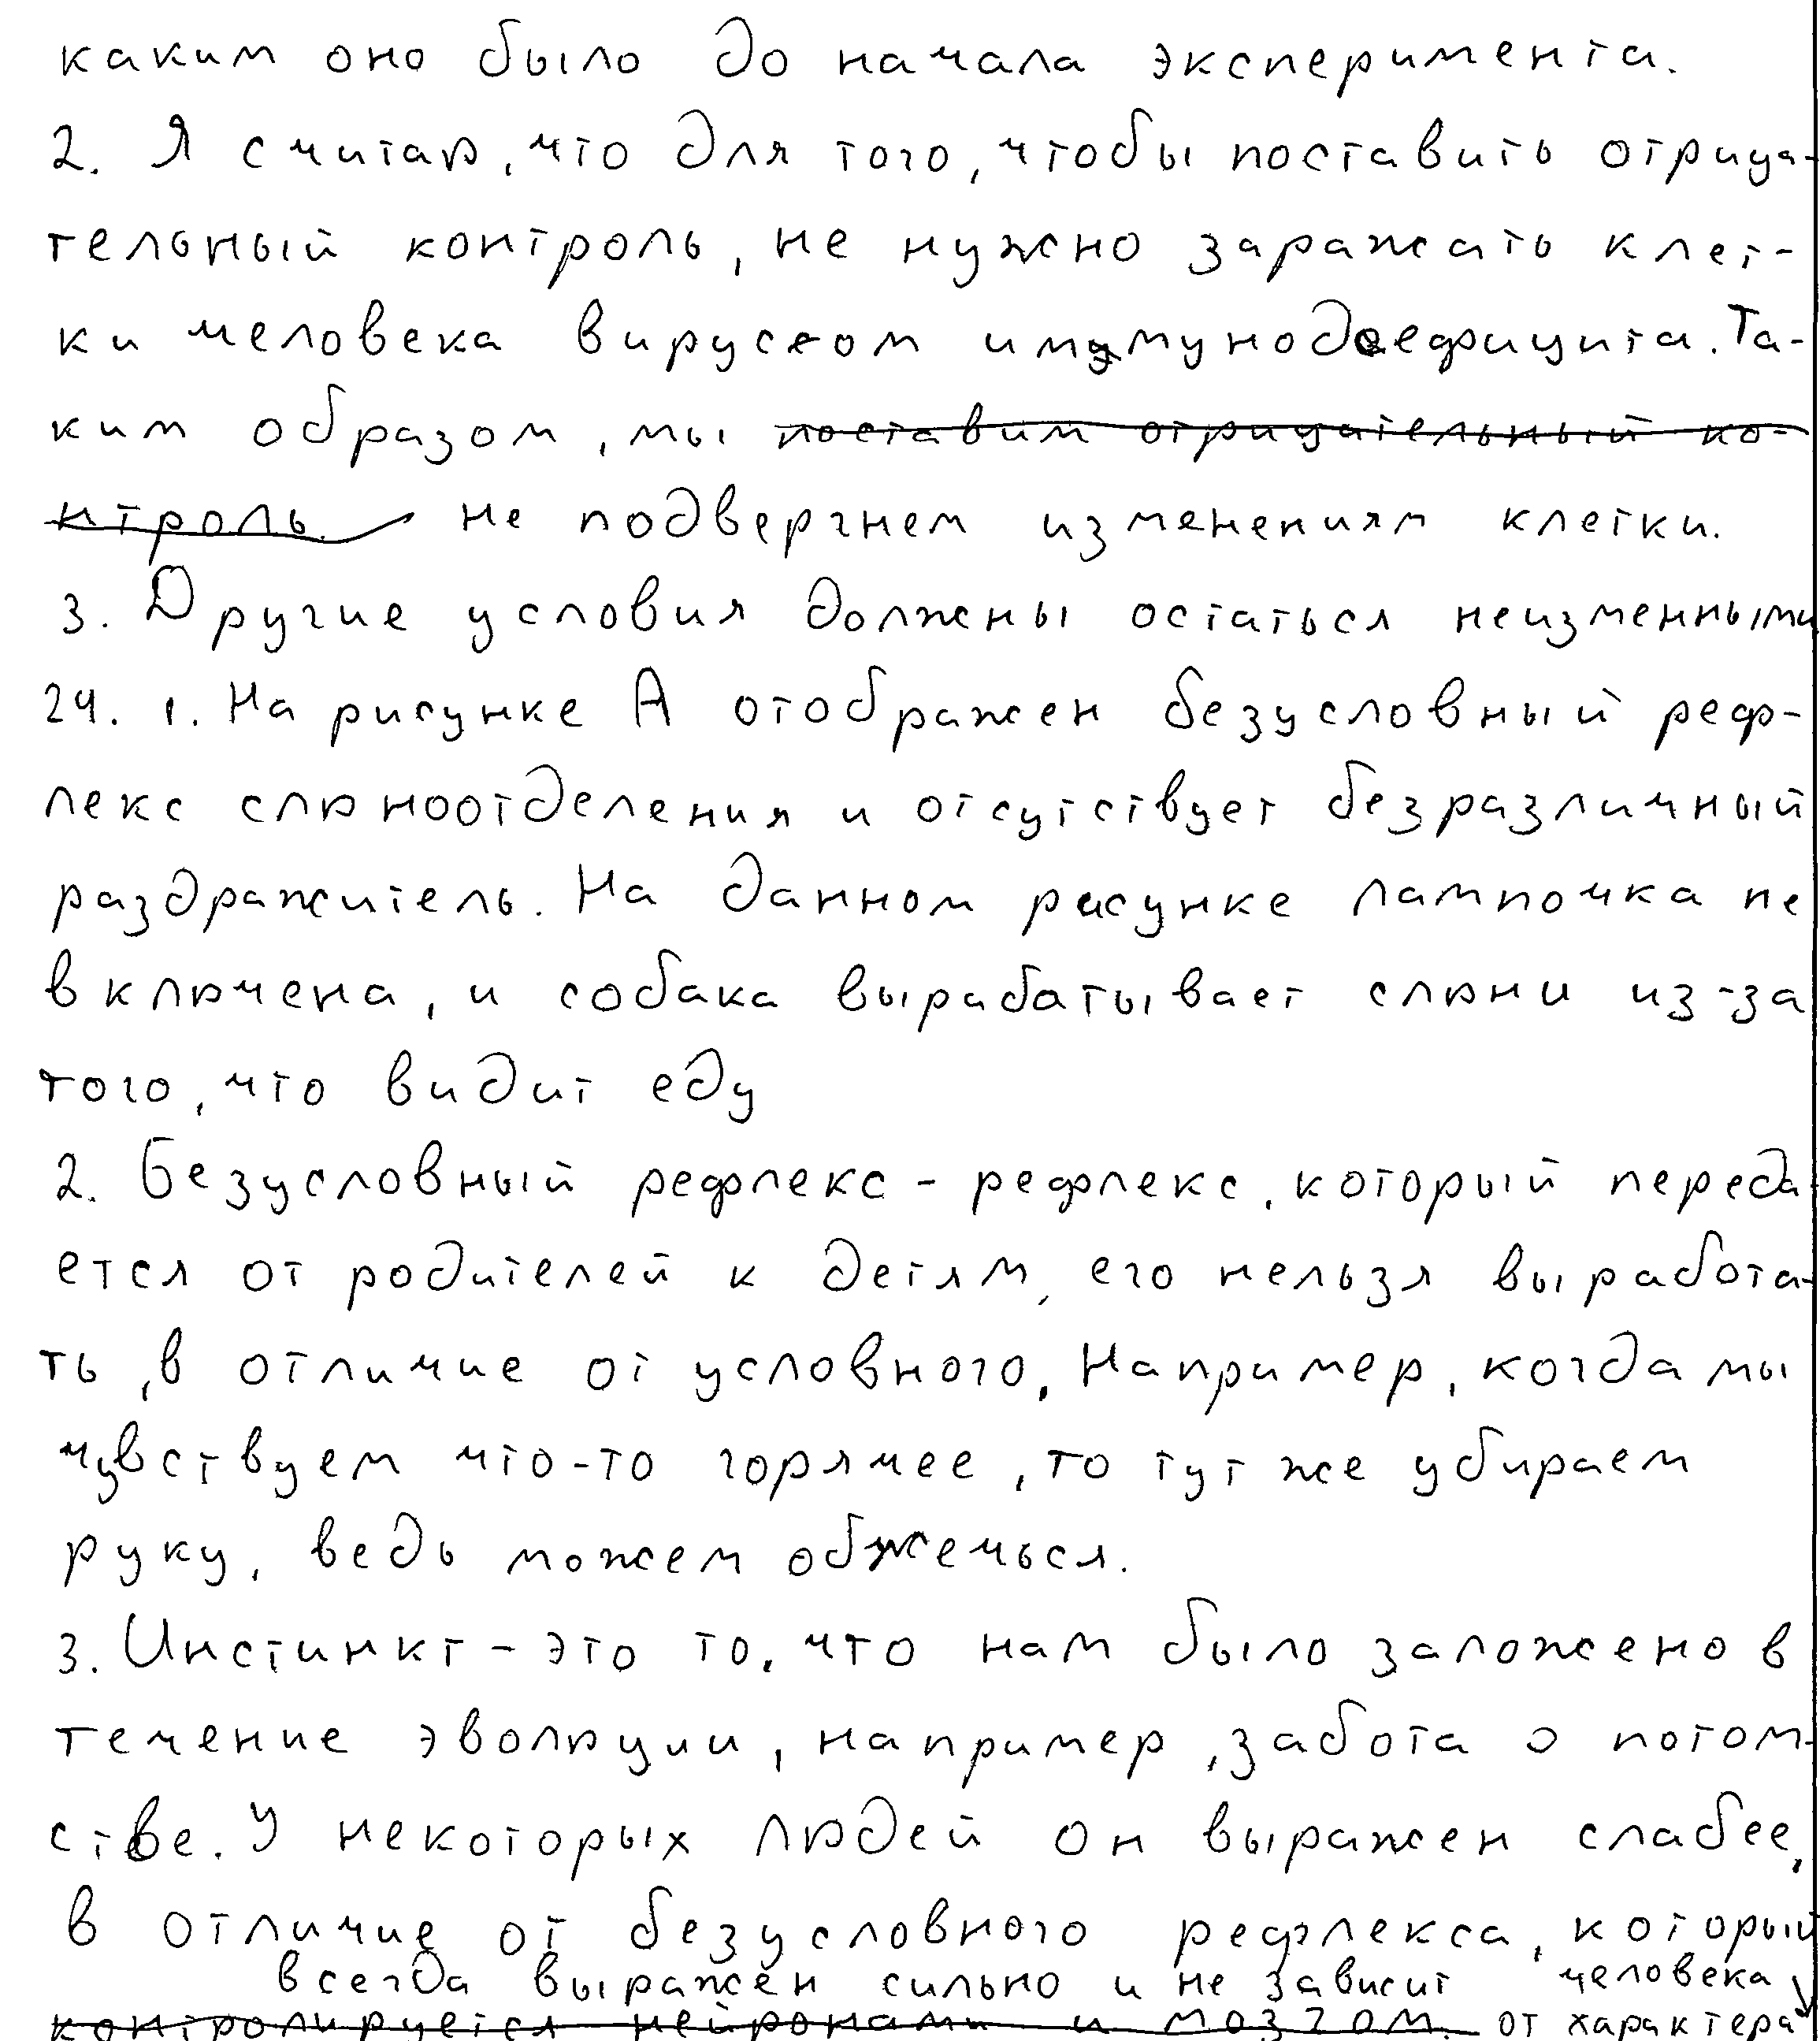 каким оно было до начала эксперимента.
2. Я считаю, что для того, чтобы поставить отрица-
тельный контроль, не нужно заражать клет-
ки человека вирусом иммунодефицита. Та-
ким образом, мы поставим отрицательный ко-
нтроль. не подвергнем изменениям клетки.
3. Другие условия должны остаться неизменными
24. 1. На рисунке А отображен безусловный реф-
лекс слюноотделения и отсутствует безразличный
раздражитель. На данном рисунке лампочка не
включена, и собака вырабатывает слюни из-за
того, что видит еду
2. Безусловный рефлекс - рефлекс, который переда-
ется от родителей к детям, его нельзя выработа-
ть, в отличие от условного. Например, когда мы
чувствуем что-то горячее, то тут же убираем
руку, ведь можем обжечься.
3. Инстинкт - это то, что нам было заложено в
течение эволюции, например, забота о потом-
стве. У некоторых людей он выражен слабее,
в отличие от безусловного рефлекса, который
всегда выражен сильно и не зависит человека
контролируется нейронами и мозгом. от характера